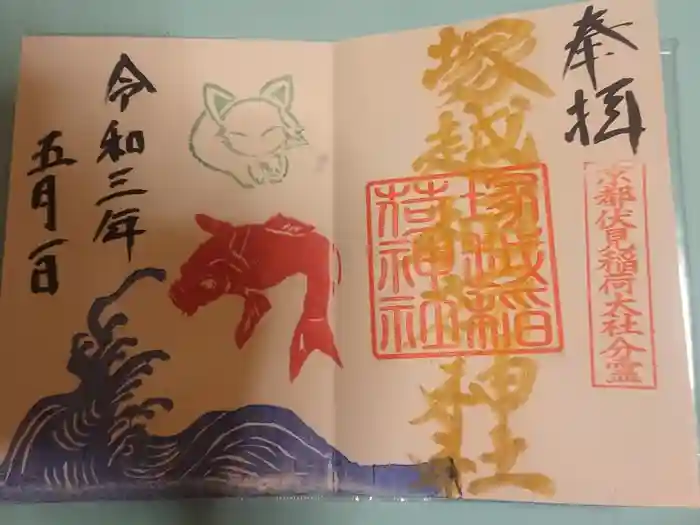 奉拝
京都伏見稲荷大社分霊
塚越稲荷神社
塚越稲
荷神社
令和三年
五月一日